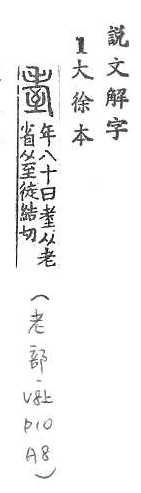 説文解字
1大徐本
耊
年八十曰耊从老
省从至徒結切
(老部-V8上 P10 A8)